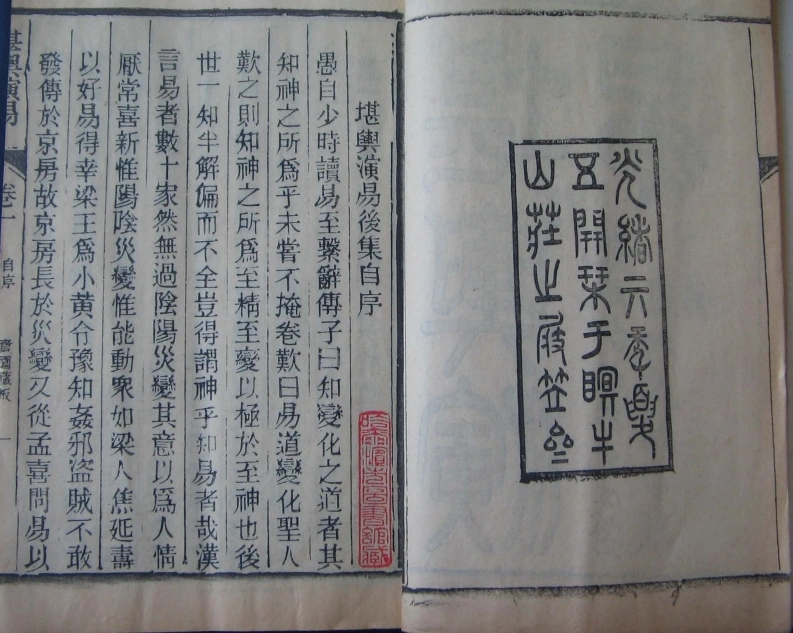 光緒六季
五開栞于瞑牛
山莊之
堪輿演易後集自序
愚自少時讀易至繫辭傳子曰知變化之道者其
知神之所爲乎未嘗不掩卷歎曰易道變化聖人
歎之則知神之所爲至精至變以極於至神也後
世一知半解偏而不全豈得謂神乎知易者哉漢
言易者數十家然無過陰陽災變其意以爲人情
厭常喜新惟陽陰災變惟能動衆如梁人焦延壽
以好易得幸梁王爲小黃令豫知姦邪盜賊不敢
發傳於京房故京房長於災變又從孟喜問易以
堪輿演易 卷一 自序